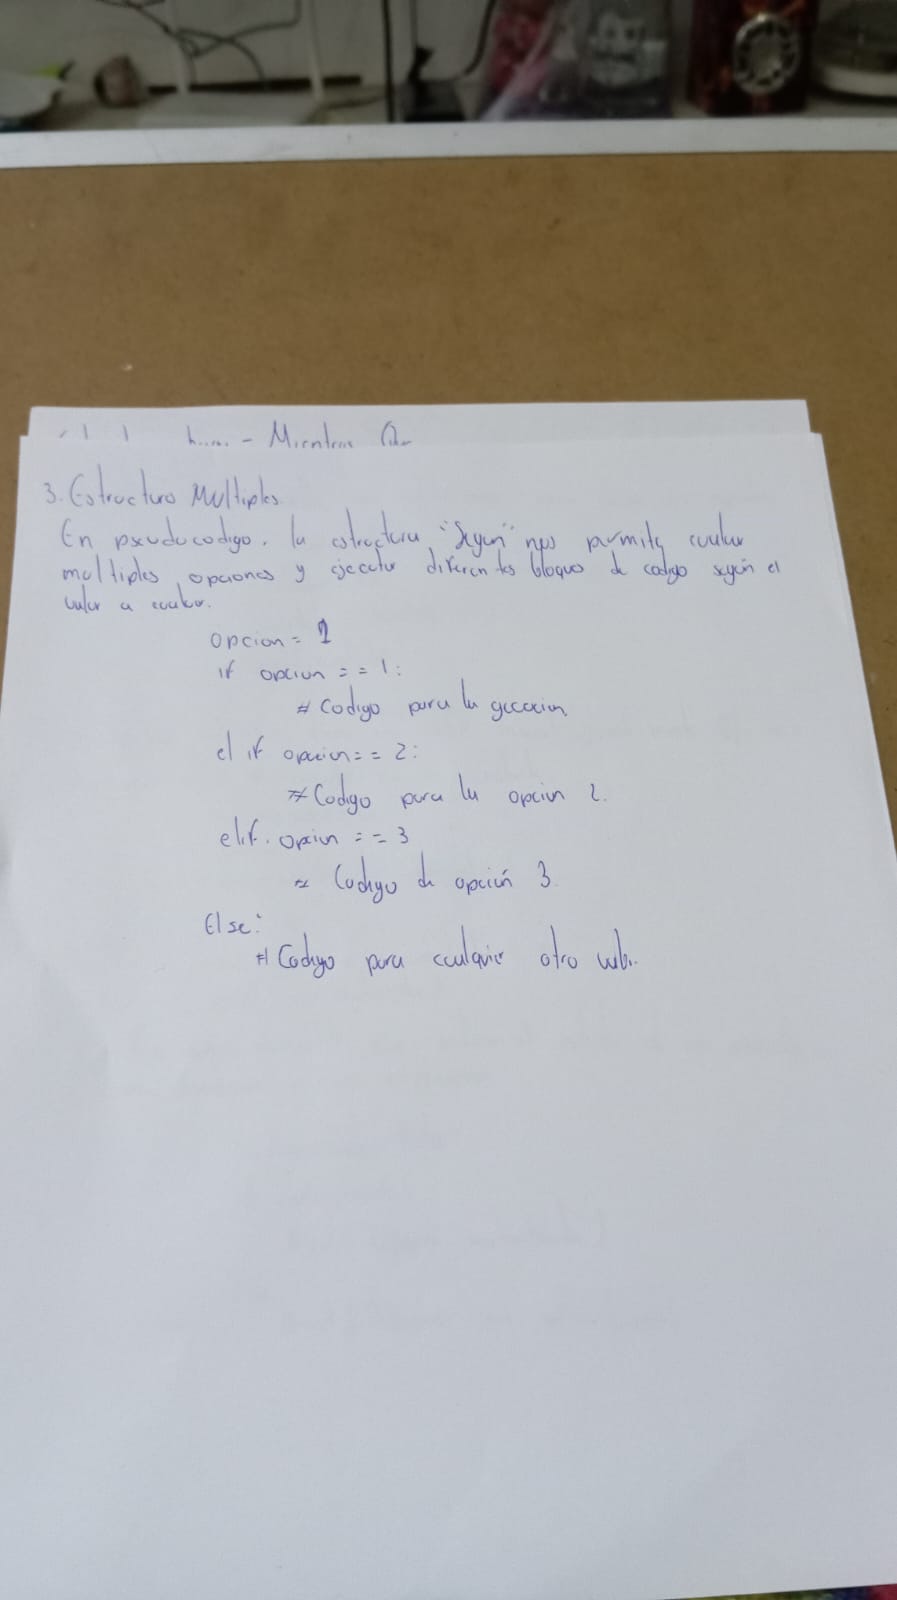 - Mientras
3. Estructura Multiples.
En pseudocodigo, la estructura "Segun" nos permite evaluar
multiples opciones y ejecutar diferentes bloques de codigo según el
valor a evaluar.
opcion =
if opcion == 1:
# Codigo para la
elif opcion == 2:
# Codigo para la opcion 2.
elif. opcion == 3
# Codigo de opción 3.
Else:
# Codigo para cualquier otro valor.